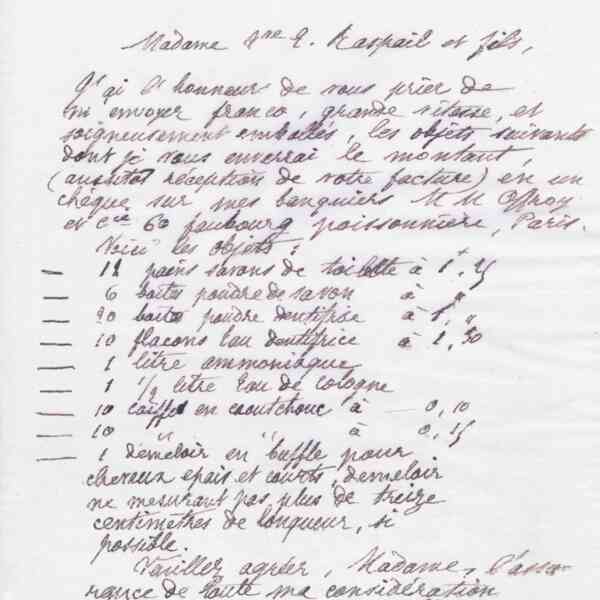 Madame Vve E. Raspail et fils,
J'ai l'honneur de vous prier de
m'envoyer franco, grande vitesse, et
soigneusement emballés, les objets suivants
dont je vous enverrai le montant,
(aussitôt réception de votre facture) en un
chèque sur mes banquiers M M Offroy
et Cie 60 faubourg poissonnière, Paris.
Voici les objets :
— 12 pains savons de toilette à 1f,25
— 6 boites poudre de savon à "
— 20 boites poudre dentifrice à 1, "
— 10 flacons Eau dentifrice à 1,50
— 1 litre ammoniaque
— 1 1/2 litre Eau de Cologne
— 10 en caoutchouc à — 0,10
— 10 " en " à 0,15
— 1 démeloir en buffle pour
cheveux épais et courts, démeloir
ne mesurant pas plus de treize
centimètres de longueur, si
possible.
Veuillez agréer, Madame, l'assu-
rance de toute ma considération